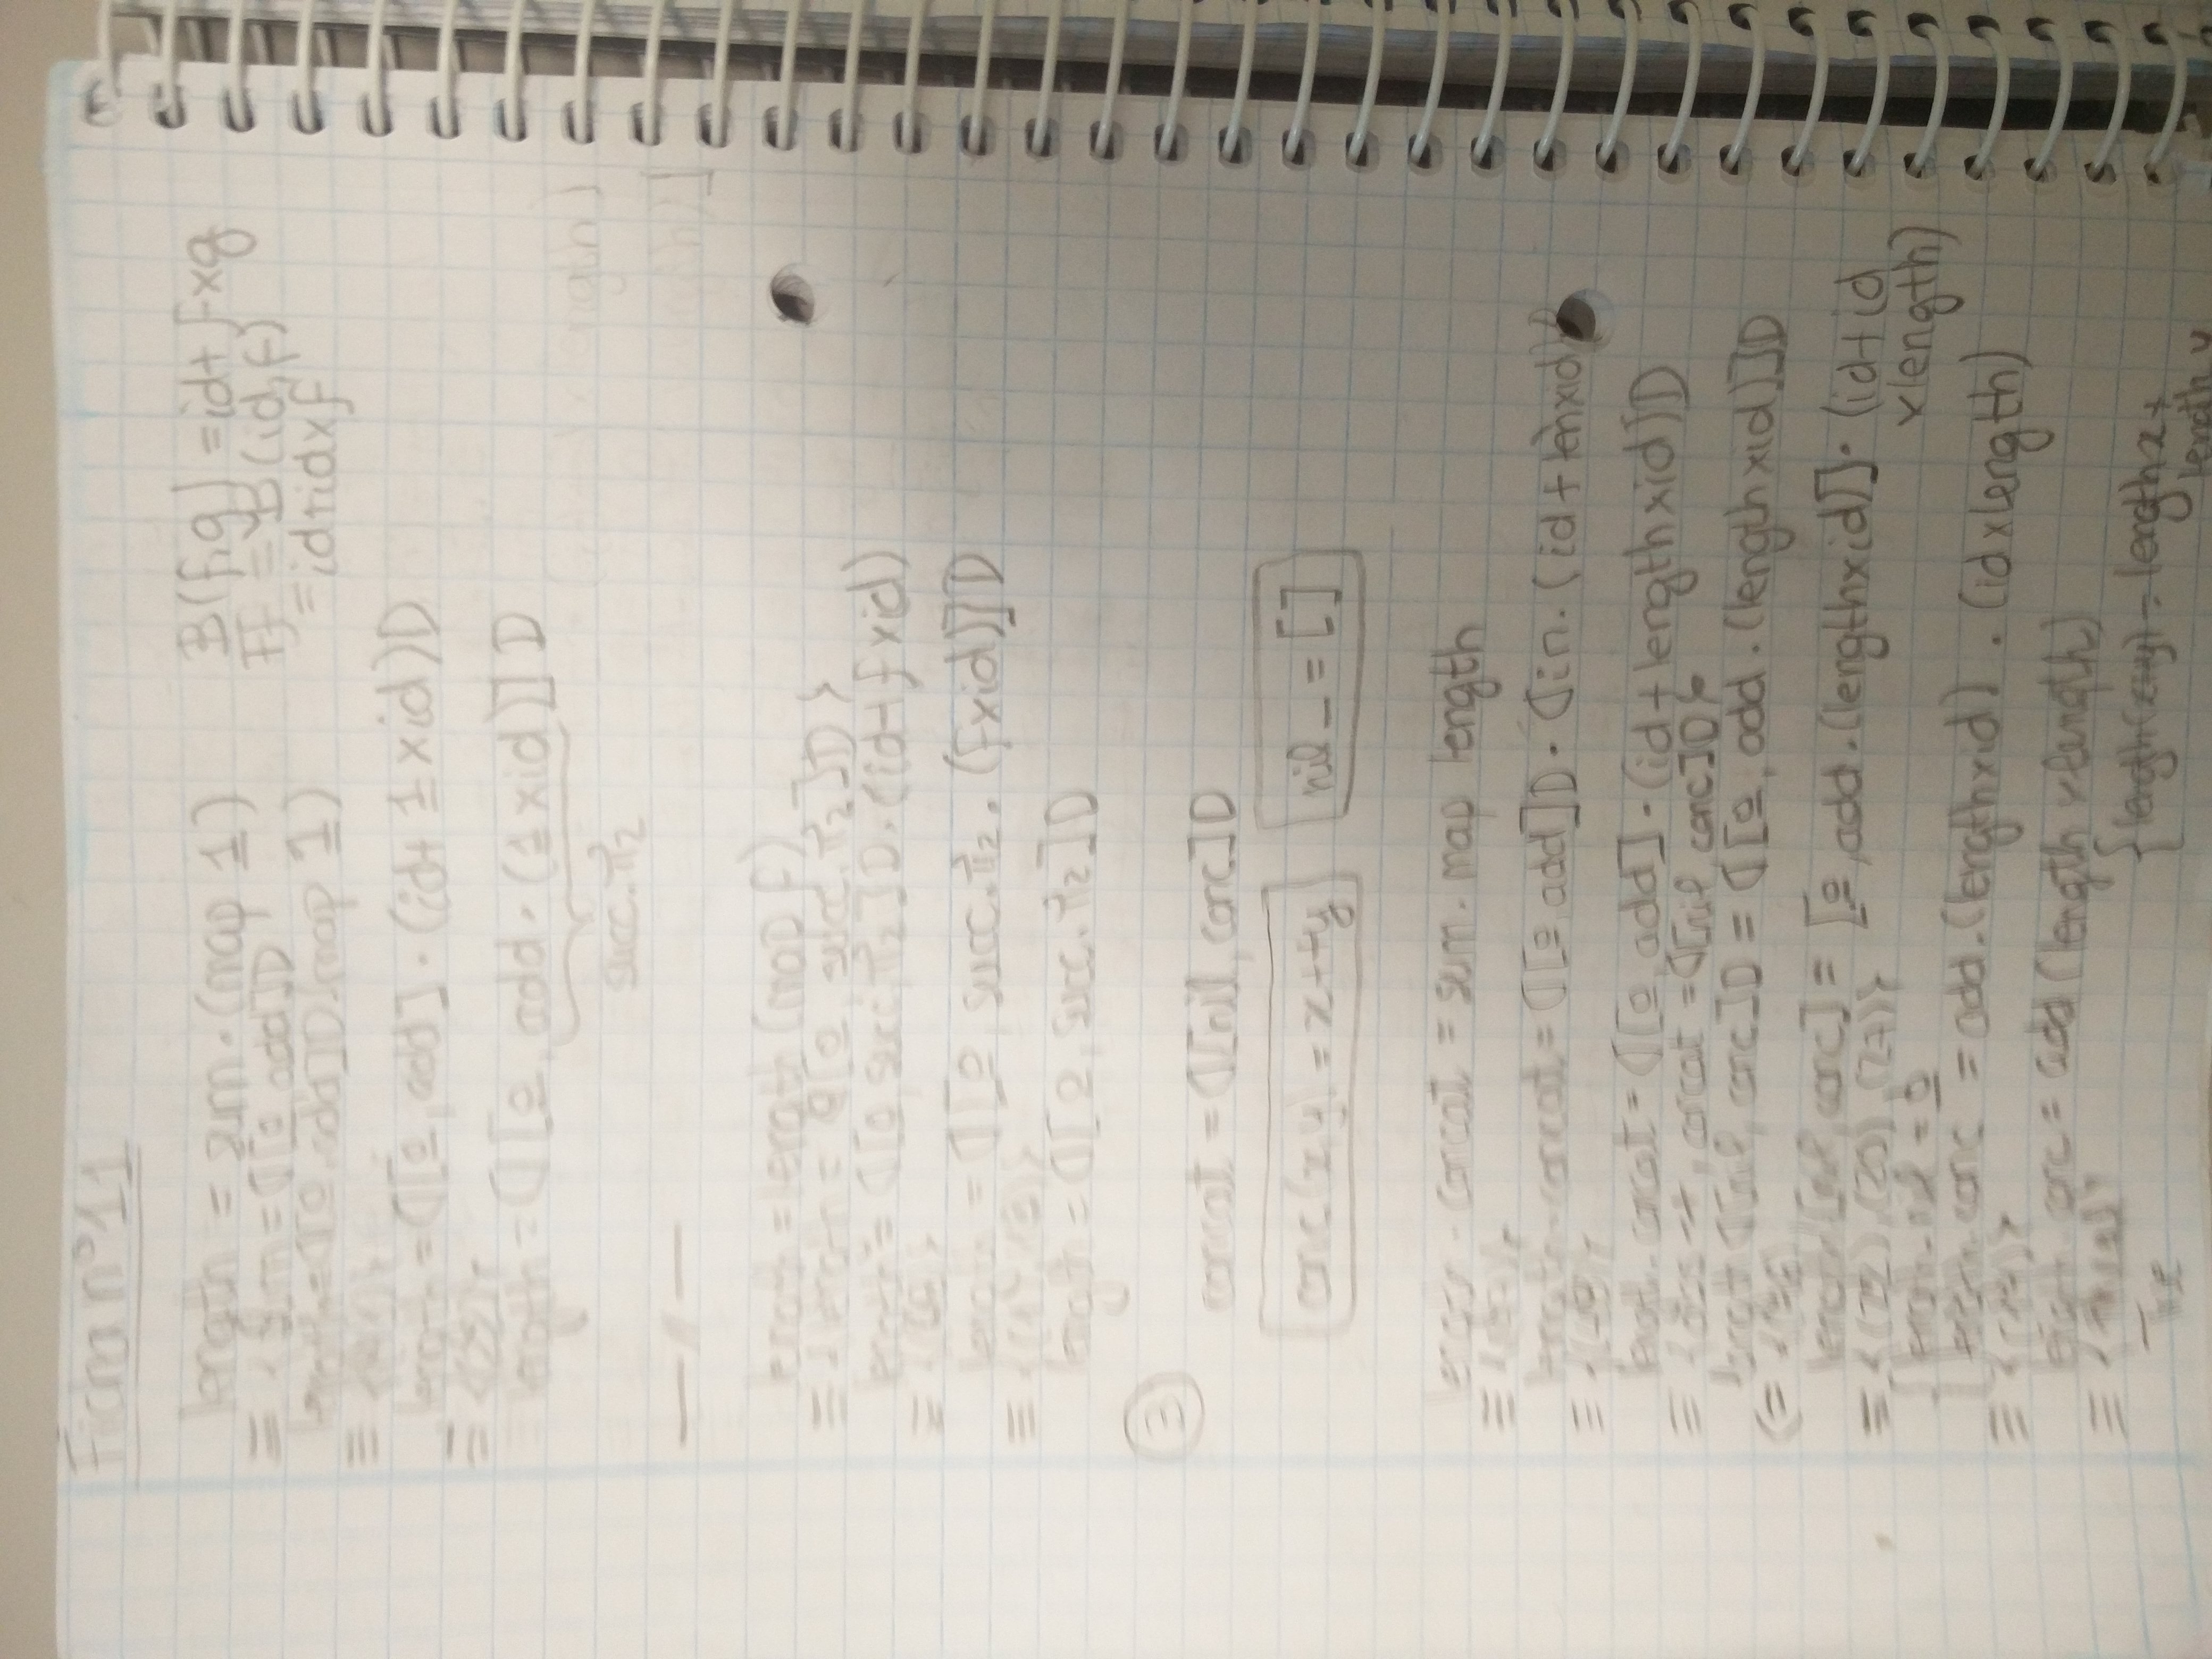 Ficha nº 11
length = sum · (map 1)
B(f,g) = id + f x g
≡ { sum = ⦇[0, add]⦈
Ff = B(id, f)
length = ⦇[0, add]⦈ · map 1)
= id + id x f
≡
length = ⦇[0, add] · (id + 1 x id)⦈
≡
length = ⦇[0, add · (1 x id)]⦈
succ · π2
— // —
length = length (map f)
≡ { length = ⦇[0, succ · π2]⦈ }
length = ⦇[0, succ · π2]⦈ · (id + f x id)
≡
length = ⦇[0, succ · π2 · (f x id)]⦈
≡
length = ⦇[0, succ · π2]⦈
3
concat = ⦇[nil, conc]⦈
conc (x, y) = x ++ y
nil _ = []
length · concat = sum · map length
≡
length · concat = ⦇[0, add]⦈ · ⦇in · (id + len x id)
≡
length · concat = ⦇[0, add] · (id + length x id)⦈
≡ { abs-+, concat = ⦇[nil, conc]⦈ }
length ⦇[nil, conc]⦈ = ⦇[0, add · (length x id)]⦈
⇐
length [nil, conc] = [0, add · (length x id)] · (id + id
x length)
≡ { (22), (20), (27) }
length · nil = 0
length · conc = add · (length x id) · (id x length)
≡
length · conc = add (length x length)
≡
True
{ length (x++y) = length x +
length y